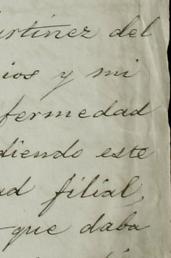 artínez del
ios y mi
fermedad
diendo este
ad filial,
que daba